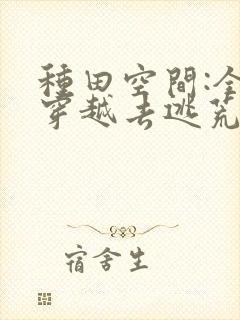 種田空間:全
穿越去逃荒
宿舍生